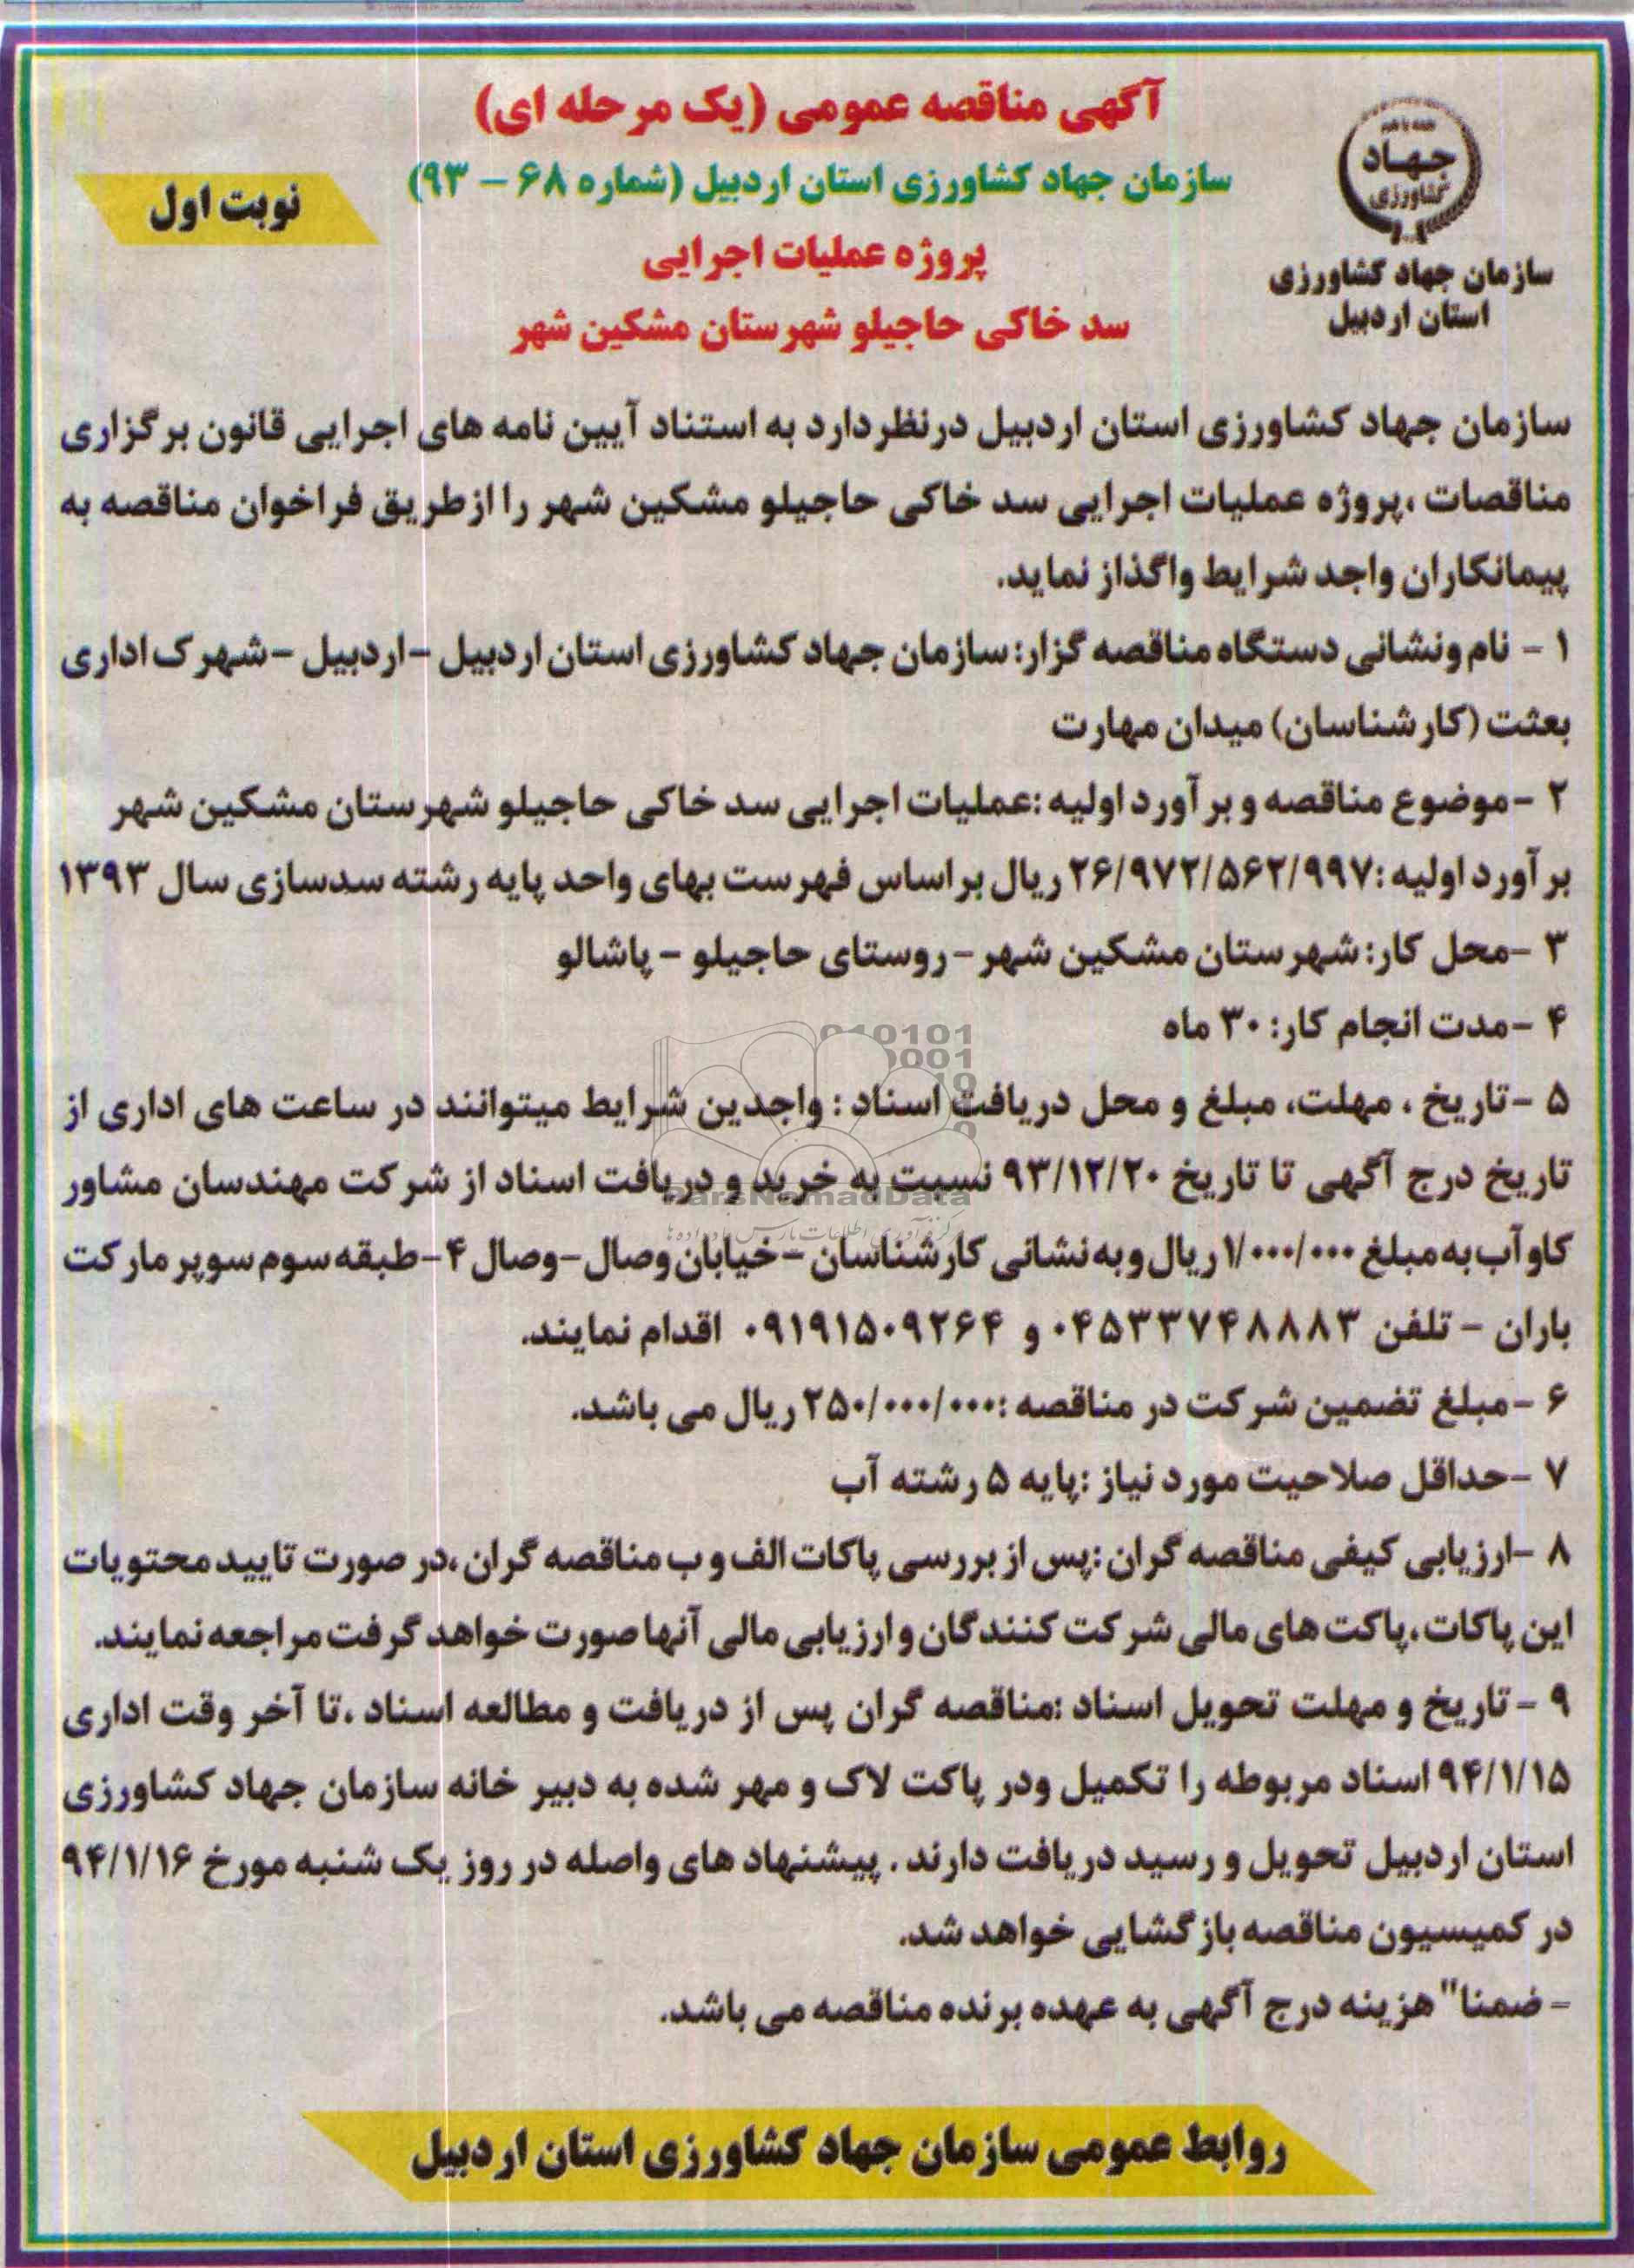 آگهی مناقصه عمومی (یک مرحله ای)
سازمان جهاد کشاورزی استان اردبیل (شماره ۶۸ - ۹۳)
پروژه عملیات اجرایی
سد خاکی حاجیلو شهرستان مشکین شهر
نوبت اول
همه با هم
جهاد
کشاورزی
سازمان جهاد کشاورزی
استان اردبیل
سازمان جهاد کشاورزی استان اردبیل درنظردارد به استناد آیین نامه های اجرایی قانون برگزاری
مناقصات ،پروژه عملیات اجرایی سد خاکی حاجیلو مشکین شهر را ازطریق فراخوان مناقصه به
پیمانکاران واجد شرایط واگذاز نماید.
۱ - نام ونشانی دستگاه مناقصه گزار: سازمان جهاد کشاورزی استان اردبیل -اردبیل -شهرک اداری
بعثت (کارشناسان) میدان مهارت
۲ -موضوع مناقصه و برآورد اولیه :عملیات اجرایی سد خاکی حاجیلو شهرستان مشکین شهر
برآورد اولیه :۲۶/۹۷۲/۵۶۲/۹۹۷ ریال براساس فهرست بهای واحد پایه رشته سدسازی سال ۱۳۹۳
۳ -محل کار: شهرستان مشکین شهر - روستای حاجیلو - پاشالو
۴ -مدت انجام کار: ۳۰ ماه
۵ -تاریخ ، مهلت، مبلغ و محل دریافت اسناد : واجدین شرایط میتوانند در ساعت های اداری از
تاریخ درج آگهی تا تاریخ ۹۳/۱۲/۲۰ نسبت به خرید و دریافت اسناد از شرکت مهندسان مشاور
کاوآب به مبلغ ۱/۰۰۰/۰۰۰ ریال و به نشانی کارشناسان - خیابان وصال-وصال ۴-طبقه سوم سوپر مارکت
باران - تلفن ۰۴۵۳۳۷۴۸۸۸۳ و ۰۹۱۹۱۵۰۹۲۶۴ اقدام نمایند.
۶ -مبلغ تضمین شرکت در مناقصه :۲۵۰/۰۰۰/۰۰۰ ریال می باشد.
۷ -حداقل صلاحیت مورد نیاز :پایه ۵ رشته آب
۸ -ارزیابی کیفی مناقصه گران :پس از بررسی پاکات الف و ب مناقصه گران ،در صورت تایید محتویات
این پاکات،پاکت های مالی شرکت کنندگان و ارزیابی مالی آنها صورت خواهد گرفت مراجعه نمایند.
۹ - تاریخ و مهلت تحویل اسناد :مناقصه گران پس از دریافت و مطالعه اسناد ،تا آخر وقت اداری
۹۴/۱/۱۵ اسناد مربوطه را تکمیل ودر پاکت لاک و مهر شده به دبیر خانه سازمان جهاد کشاورزی
استان اردبیل تحویل و رسید دریافت دارند . پیشنهاد های واصله در روز یک شنبه مورخ ۹۴/۱/۱۶
در کمیسیون مناقصه بازگشایی خواهد شد.
- ضمنا" هزینه درج آگهی به عهده برنده مناقصه می باشد.
روابط عمومی سازمان جهاد کشاورزی استان اردبیل
ParsNamadData